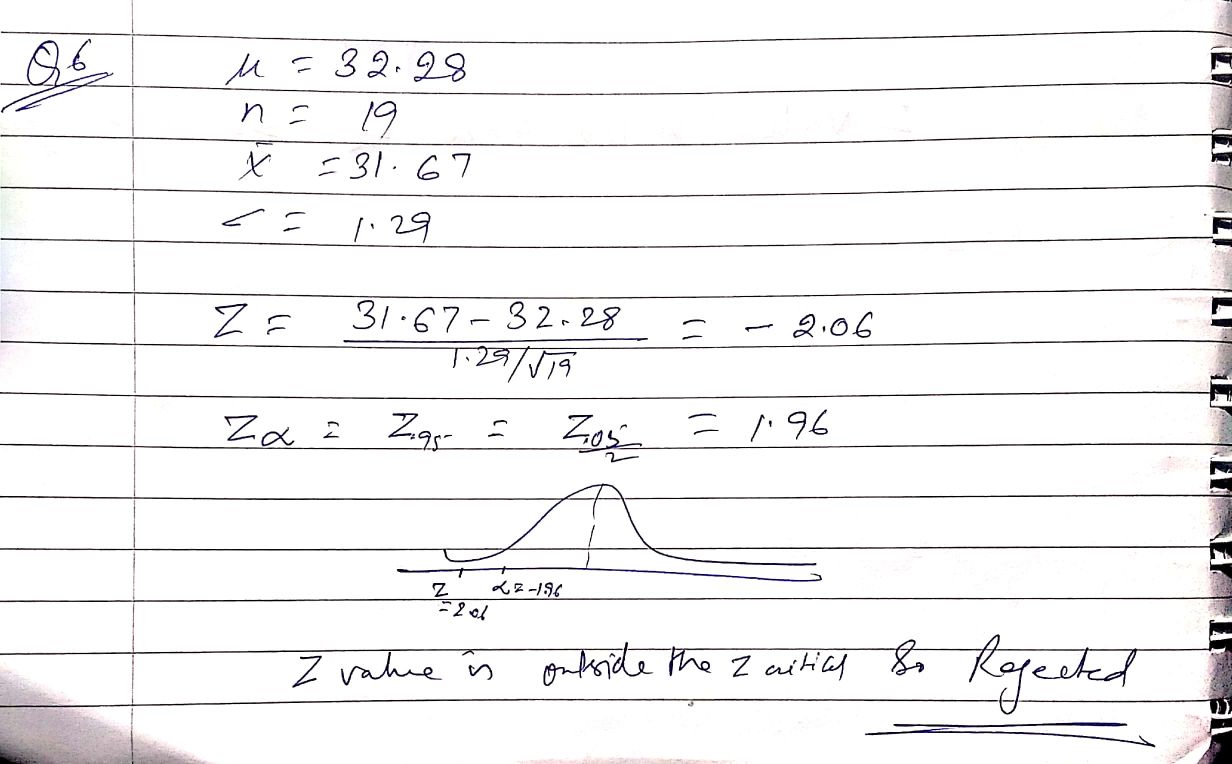 Q6
μ = 32.28
n = 19
x̄ = 31.67
σ = 1.29
Z = (31.67 - 32.28) / (1.29/√19) = - 2.06
Zα = Z.95 = Z.05/2 = 1.96
Z = 2.06 α = -1.96
Z value is outside the Z critical So Rejected